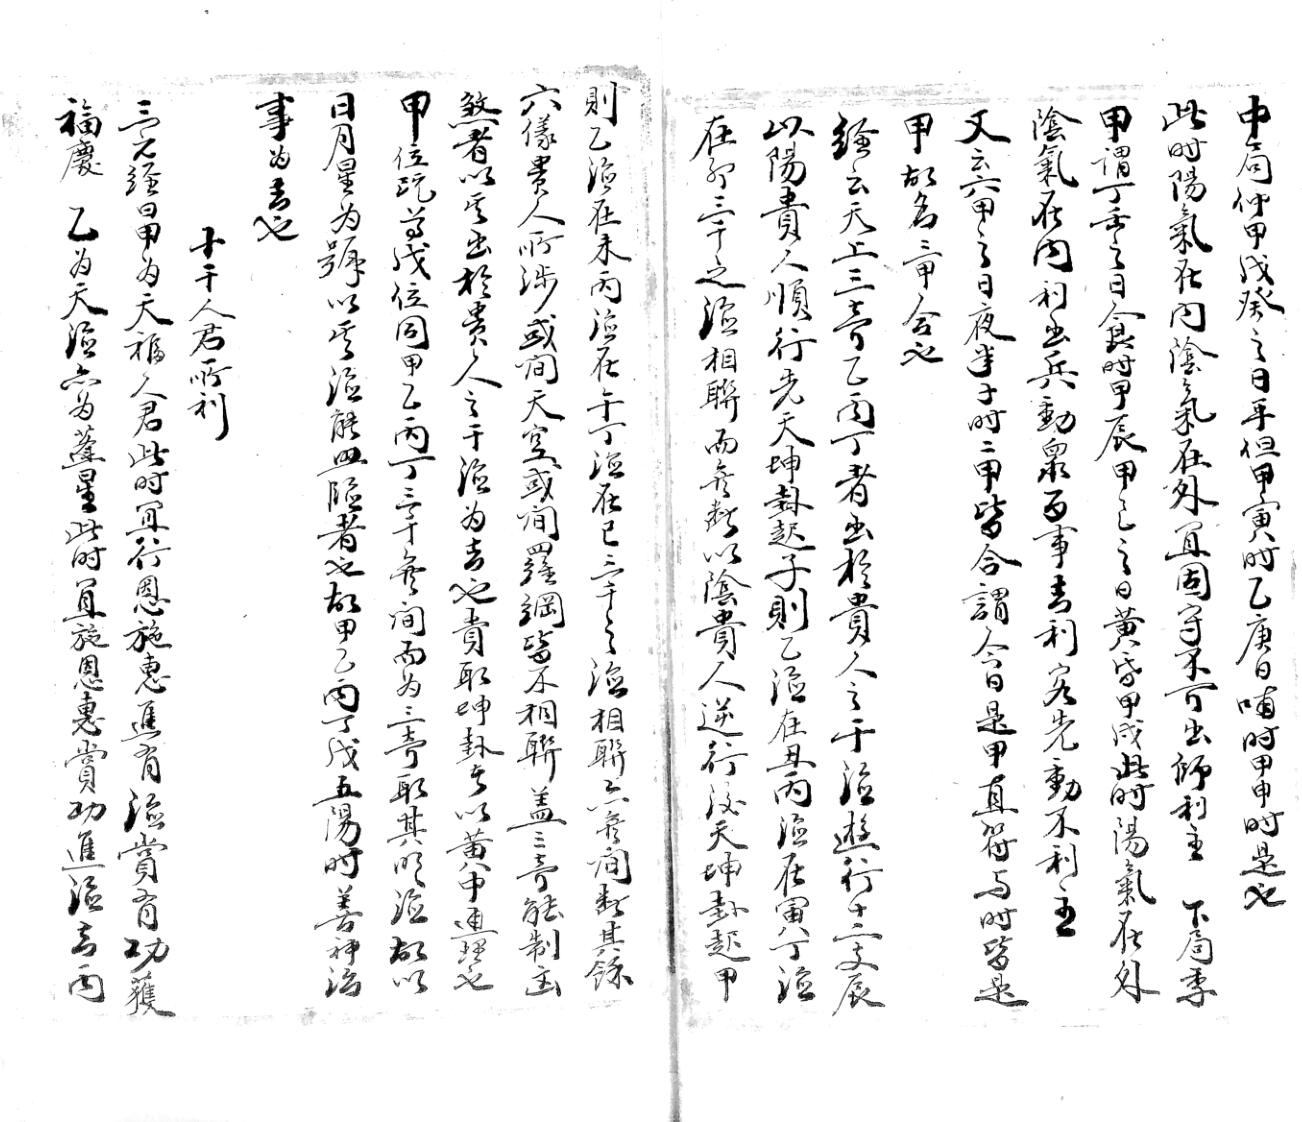 中局仲甲戊癸之日平但甲寅时乙庚日哺时甲申时是也
此时陽氣在内陰氣在外宜固守不可出師利主　下局季
甲謂丁壬之日食时甲辰甲己之日黄昏甲戌此时陽氣在外
陰氣在内利出兵動衆百事吉利客先動不利主
又云六甲之日夜半子时二甲皆合謂今日是甲直符与时皆是
甲故名三甲合也
經云天上三奇乙丙丁者出於貴人之干德遊行十二支辰
以陽貴人順行先天坤卦起子則乙德在丑丙德在寅丁德
在卯三干之德相聯而無数以陰貴人逆行後天坤卦起甲
則乙德在未丙德在午丁德在巳三干之德相聯亦無间数其餘
六儀貴人所涉或间天空或间羅網皆不相聯盖三奇能制凶
煞者以其出於貴人之干德为吉也貴取坤卦者以黄中通理也
甲位既尊戊位同甲乙丙丁三干無间而为三奇取其明德故以
日月星为號以其德能照臨者也故甲乙丙丁戊五陽时善神治
事为吉也
十干人君所利
三元經曰甲为天福人君此时宜行恩施惠進有德賞有功獲
福慶　乙为天德亦为蓬星此时宜施恩惠賞功進德吉丙